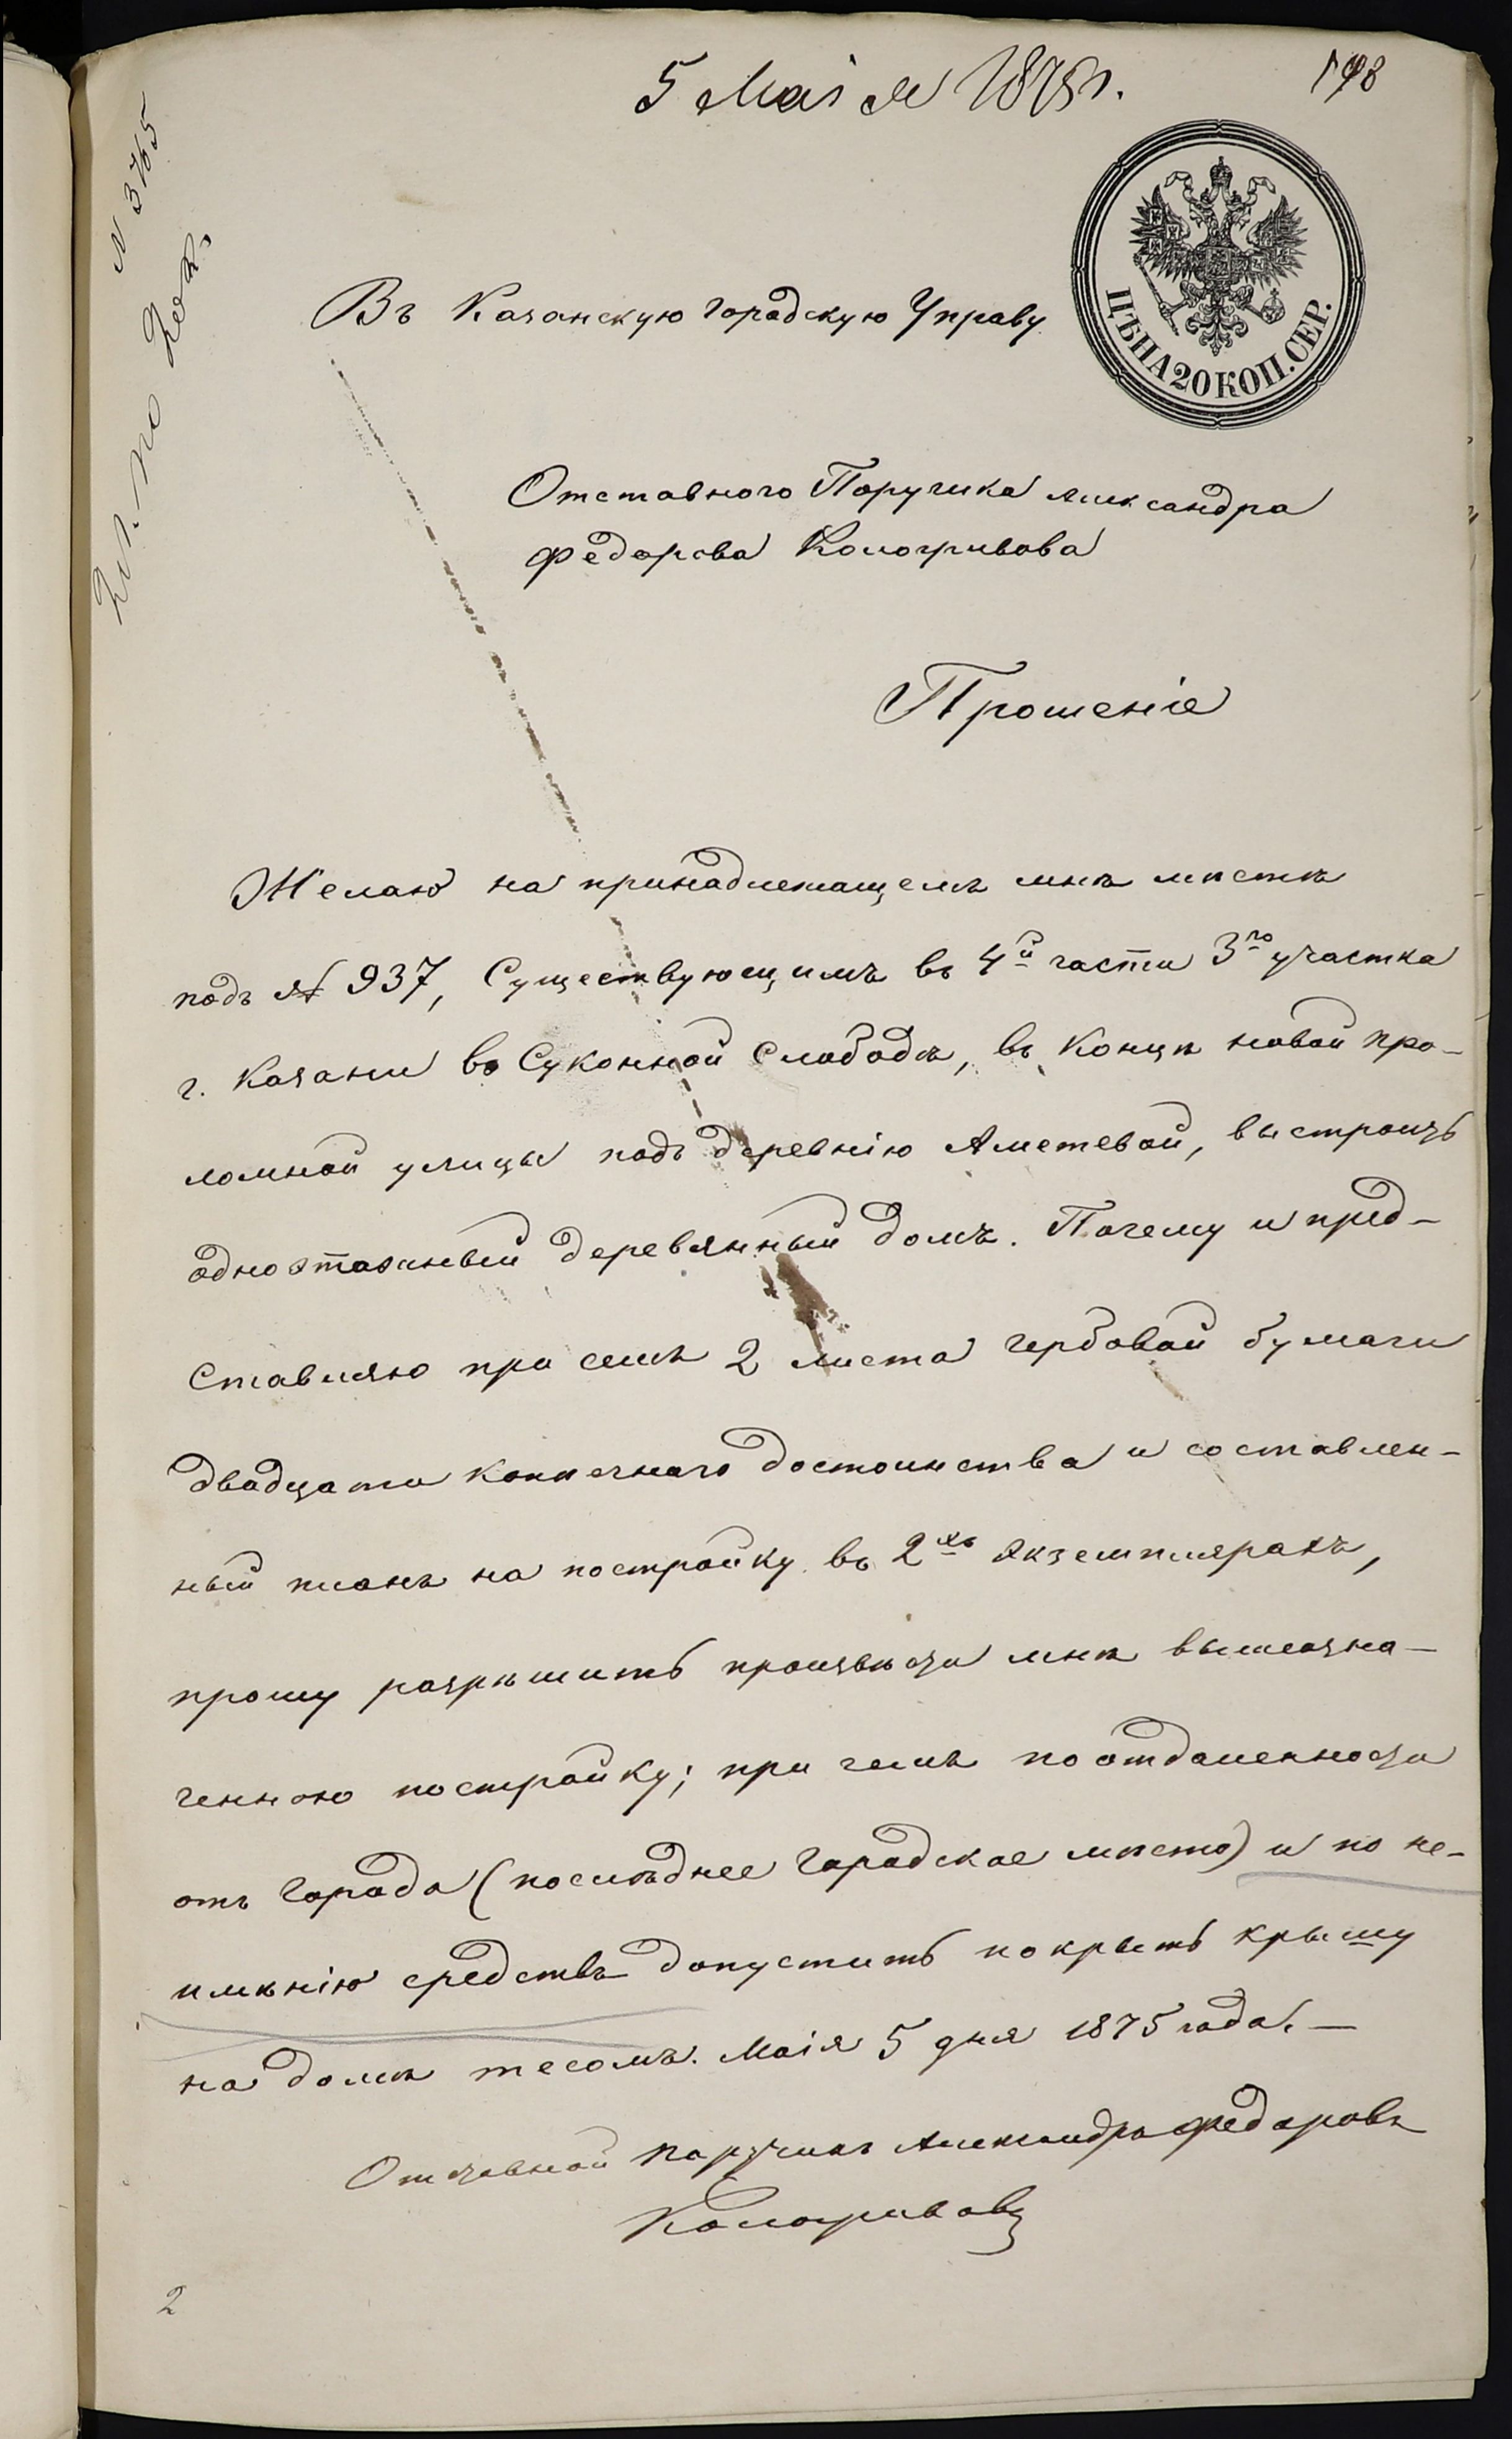 5 Маія 1875 г.
198
№ 3765
ЦѢНА 20 КОП. СЕР.
Въ Казанскую Городскую Управу
Отставного Поручика Александра
Федорова Кологривова
Прошеніе
Желаю на принадлежащемъ мнѣ мѣстѣ
подъ № 937, Существующимъ въ 4й части 3го участка
г. Казани въ Суконной Слободѣ, въ Концѣ новой про-
ломной улицы подъ деревнію Аметевой, выстроить
одноэтажный деревянный домъ. Почему и пред-
ставляю при семъ 2 листа гербовой бумаги
двадцати копѣечнаго достоинства и составлен-
ный планъ на постройку въ 2хъ экземплярахъ,
прошу разрѣшить произвѣсти мнѣ вышеозна-
ченною постройку; при чемъ по отдаленности
отъ Города (послѣднее Городское мѣсто) и по не-
имѣнію средствъ допустить покрыть крышу
на домѣ тесомъ. Маія 5 дня 1875 года. —
Отставной Поручикъ Александръ Федоровъ
Кологривовъ
2